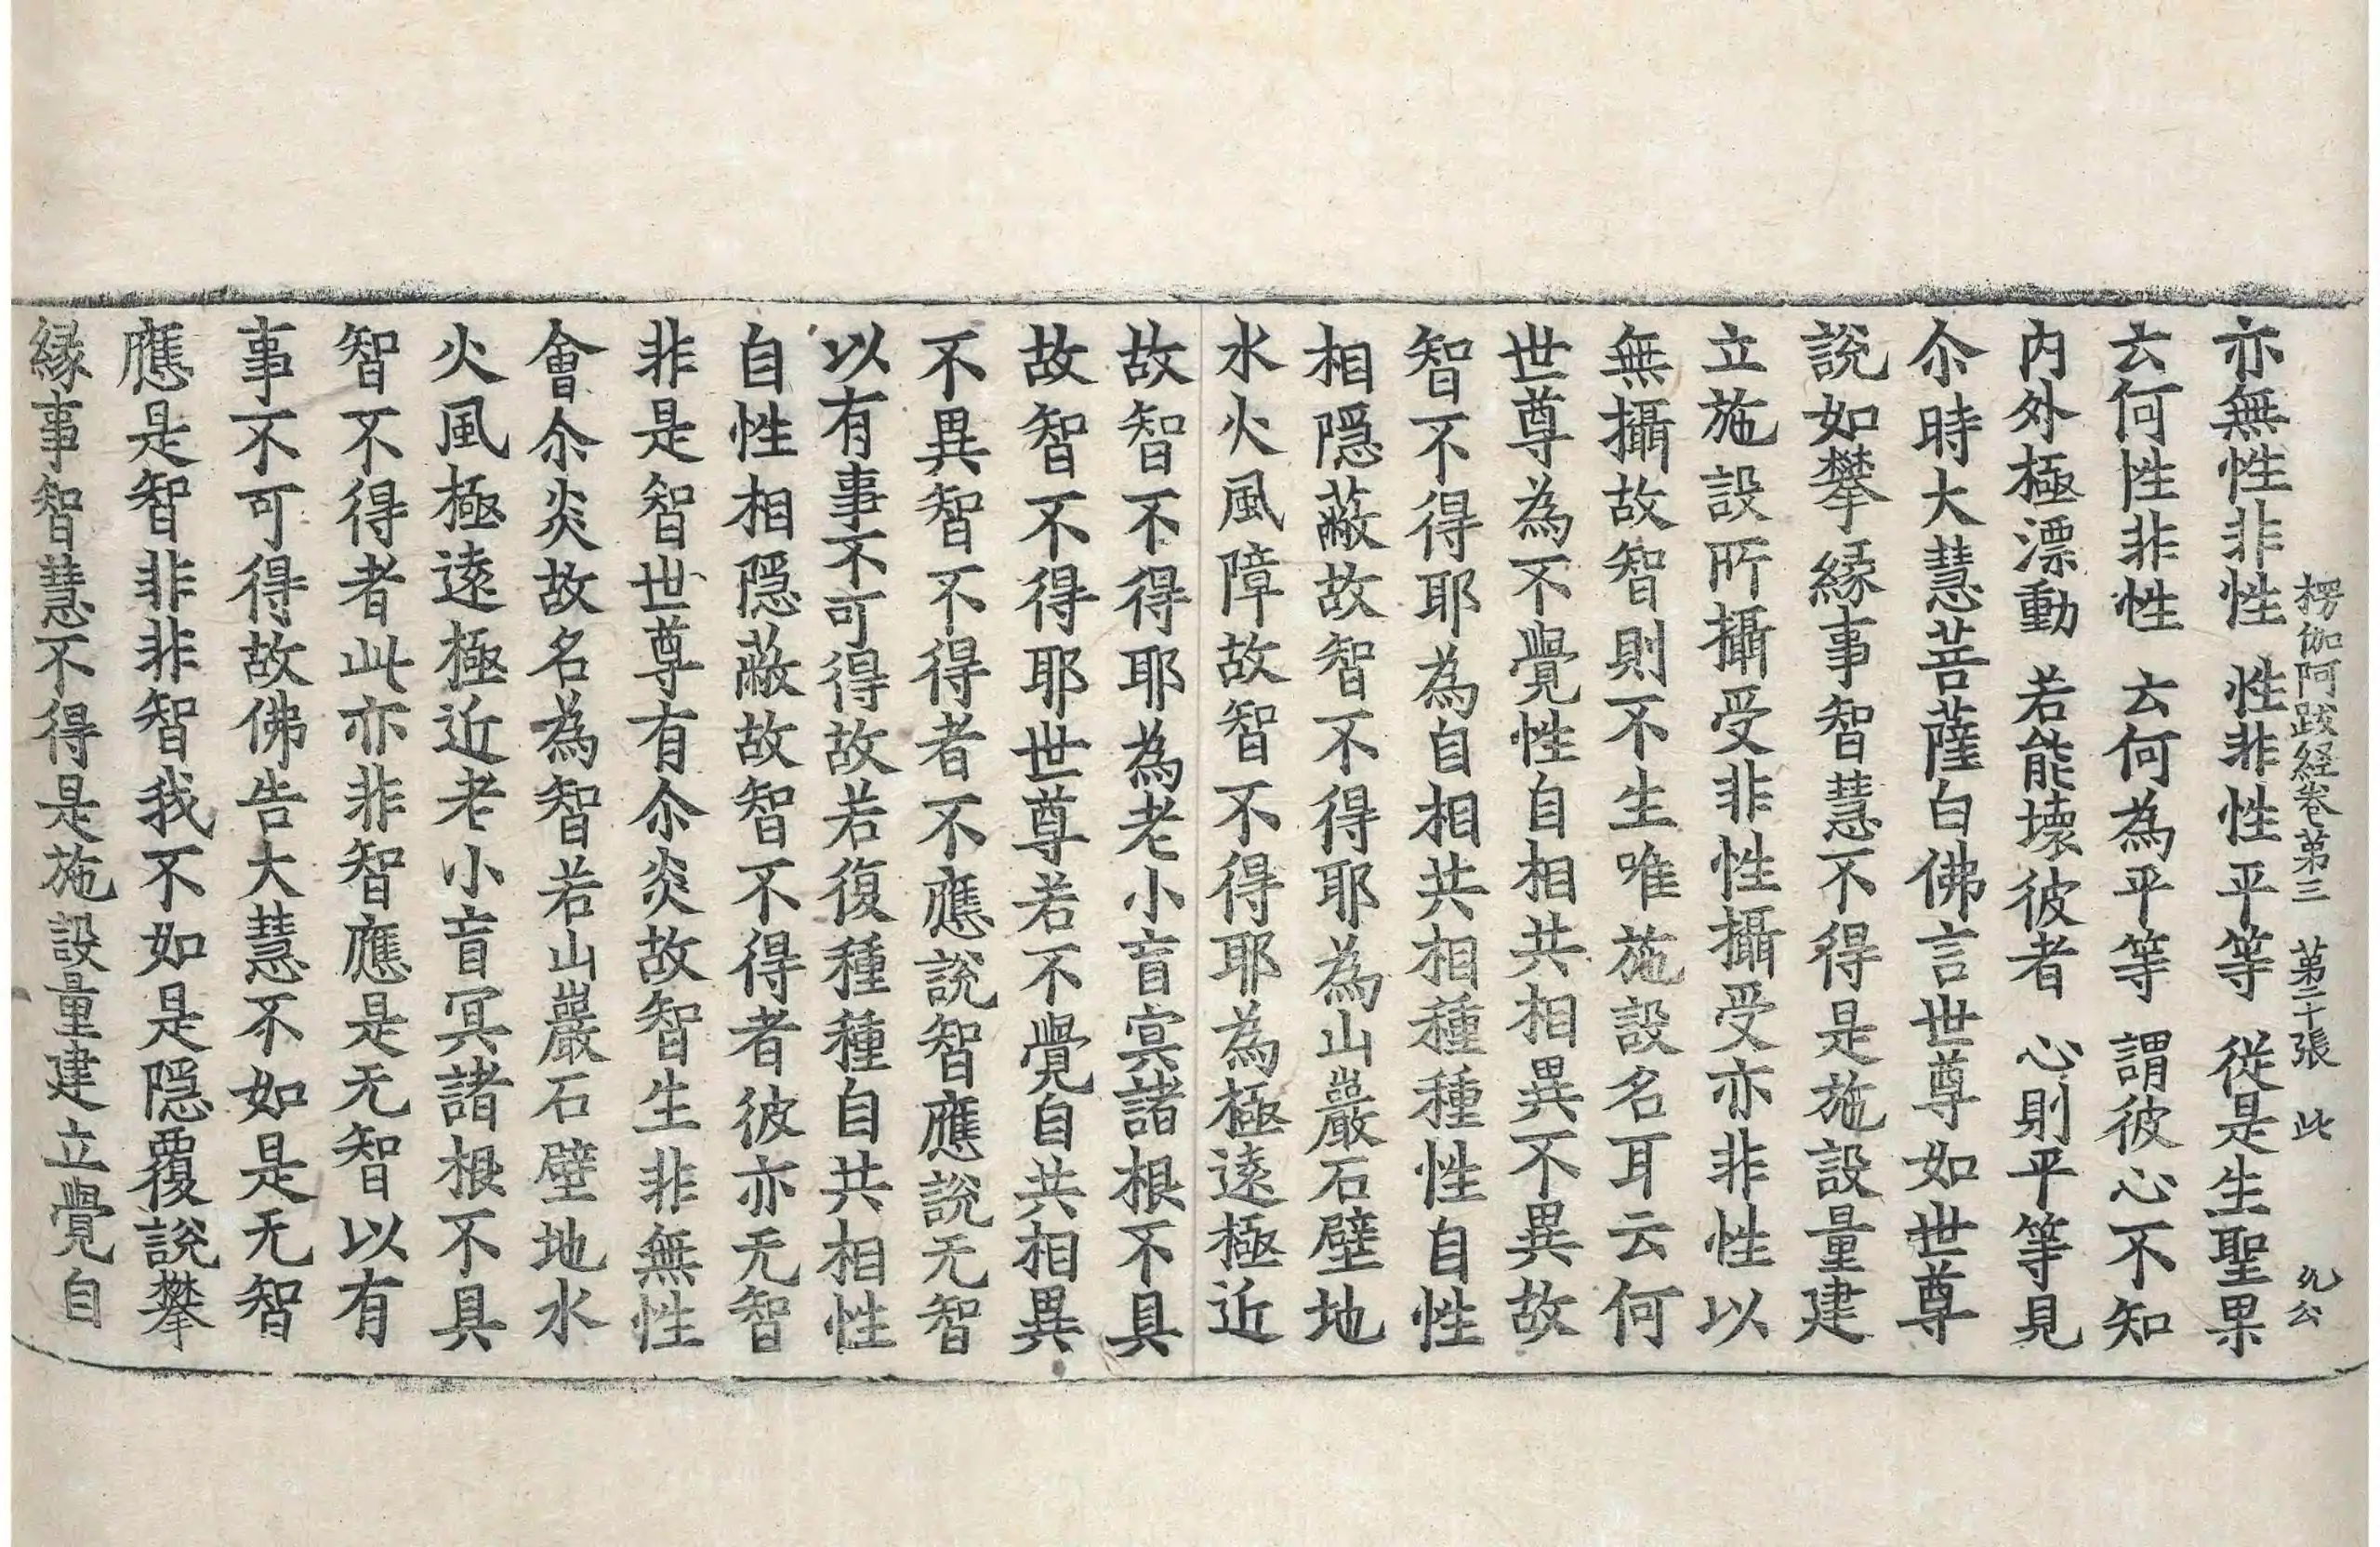 楞伽阿跋経卷第三　第二十張　此　　公
亦無性非性　性非性平等　從是生聖果
云何性非性　云何為平等　謂彼心不知
内外極漂動　若能壞彼者　心則平等見
尒時大慧菩薩白佛言世尊如世尊
說如攀縁事智慧不得是施設量建
立施設所攝受非性攝受亦非性以
無攝故智則不生唯施設名耳云何
世尊為不覺性自相共相異不異故
智不得耶為自相共相種種性自性
相隠蔽故智不得耶為山巖石壁地
水火風障故智不得耶為極遠極近
故智不得耶為老小盲冥諸根不具
故智不得耶世尊若不覺自共相異
不異智不得者不應說智應說无智
以有事不可得故若復種種自共相性
自性相隠蔽故智不得者彼亦无智
非是智世尊有尒炎故智生非無性
會尒炎故名為智若山巖石壁地水
火風極遠極近老小盲冥諸根不具
智不得者此亦非智應是无智以有
事不可得故佛告大慧不如是无智
應是智非非智我不如是隠覆說攀
縁事智慧不得是施設量建立覺自